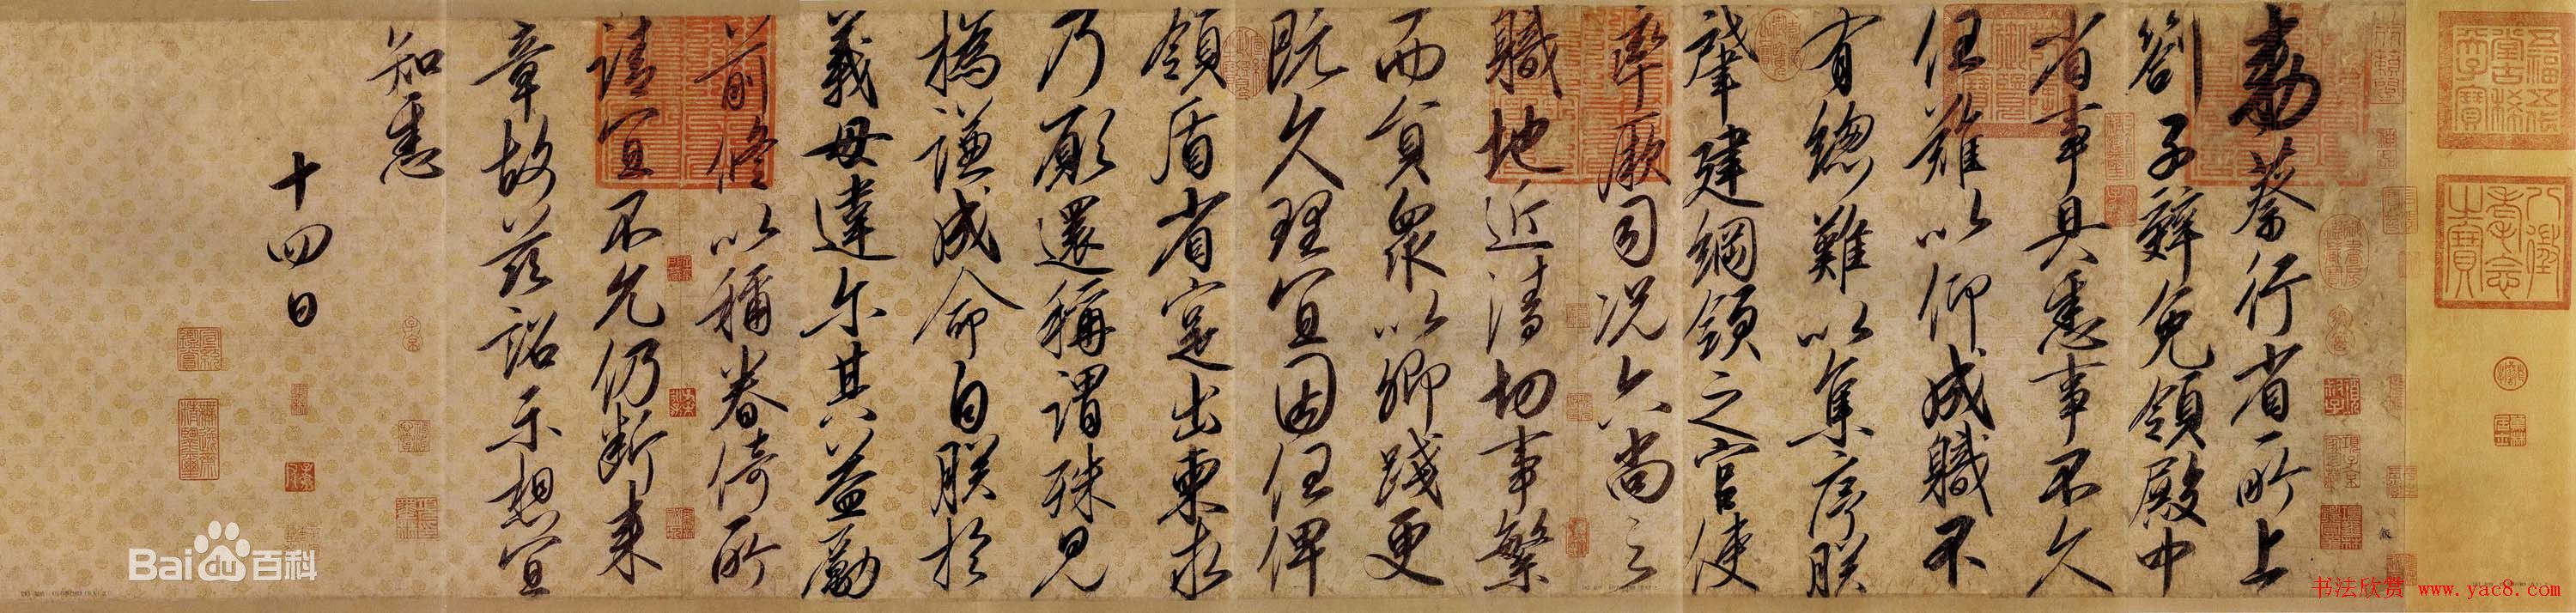 敕蔡行省所上
劄子辞免領殿中
省事具悉事不久
任難以仰成職不
有總難以集序朕
肇建綱領之官使
率厥司況六尚之
職地近清切事繁
而員衆以卿踐更
既久理宜因任俾
領盾省寔出柬求
乃願還稱謂殊見
撝謙成命自朕於
義毋違尔其益勵
前修以稱眷倚所
請宜不允仍断来
章故茲詔示想宜
知悉
十四日
八徵耄念之寶
Bai百科
书法欣赏 www.yac8.com